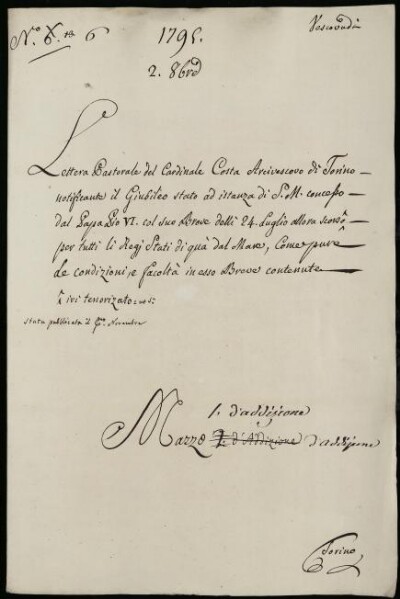 Vescovadi
N.º X.ts 6
1795.
2. 8brd
Lettera Pastorale del Cardinale Costa Arcivescovo di Torino
notificante il Giubileo stato ad istanza di S. M. concesso
dal Papa Pio VI. col suo Breve delli 24. Luglio allora scorso
per tutti li Regj Stati di quà dal Mare, Come pure
le condizioni, e facoltà in esso Breve contenute
ivi tenorizato
stata pubblicata il Novembre
1. d'addizione
Mazzo d'Addizione d'addizione
Torino